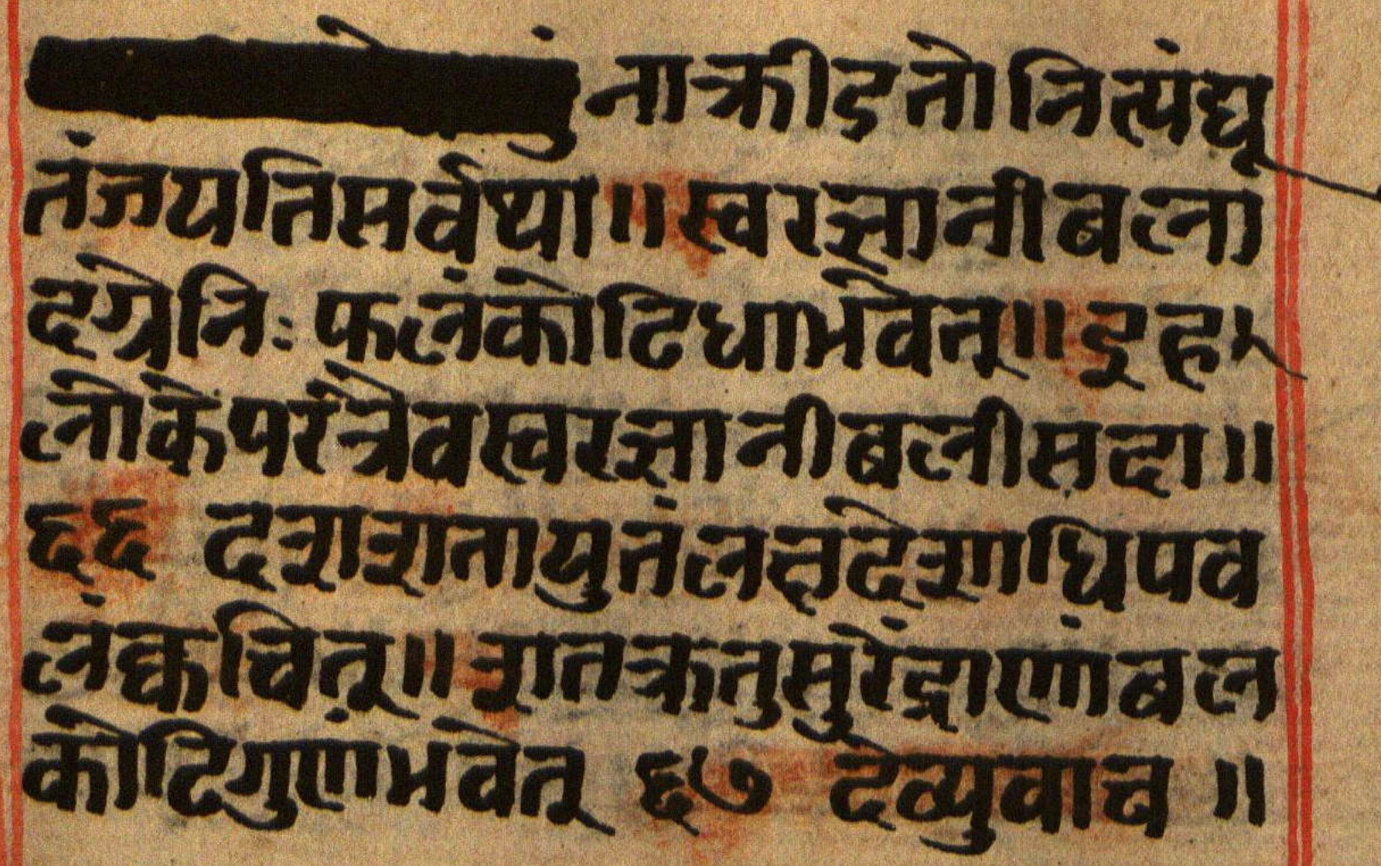 नाक्रीडतो नित्यं द्यू
तं जयति सर्वथा ॥ स्वरज्ञानी बला
दग्रे निः फलं कोटिधा भवेत् ॥ इह
लोके परत्रैव स्वरज्ञानी बली सदा ॥
६६ दशशतायुतं लक्षदेशाधिपव
लं क्वचित् ॥ शतक्रतुसुरेंद्राणां बल
कोटिगुणं भवेत् ६७ देव्युवाच ॥